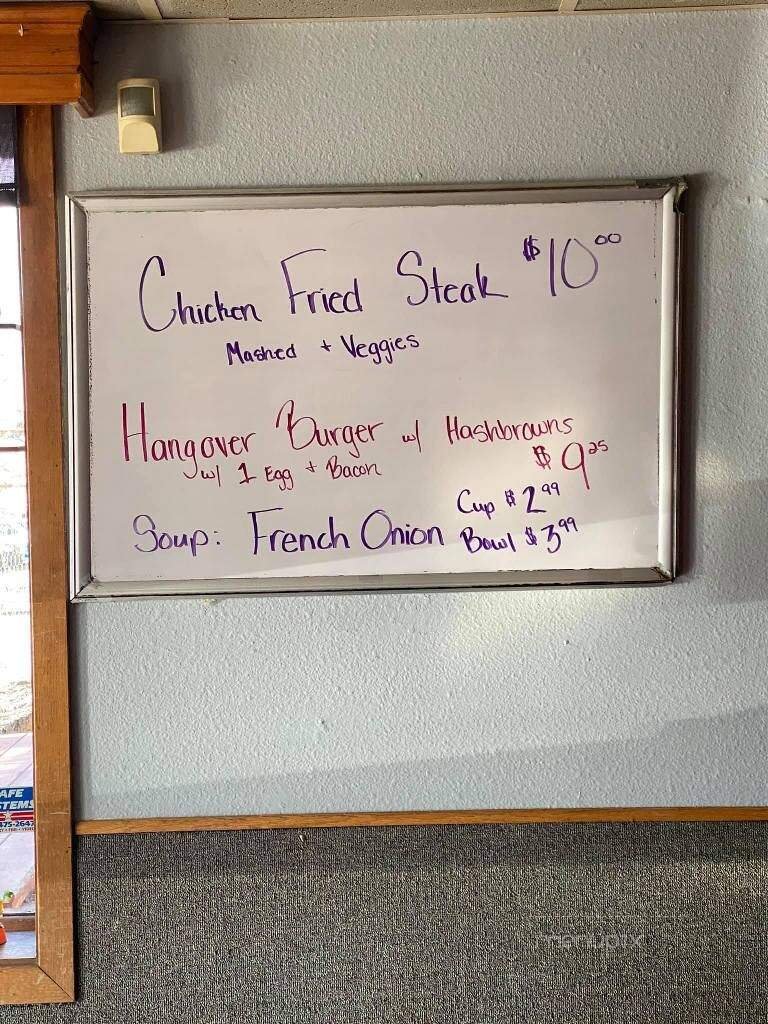 Chicken Fried Steak $10.00
Mashed + Veggies
Hangover Burger w/ Hashbrowns
w/ 1 Egg + Bacon $9.25
Soup: French Onion Cup $2.99
Bowl $3.99
AFE
STEMS
475-2647
menupix